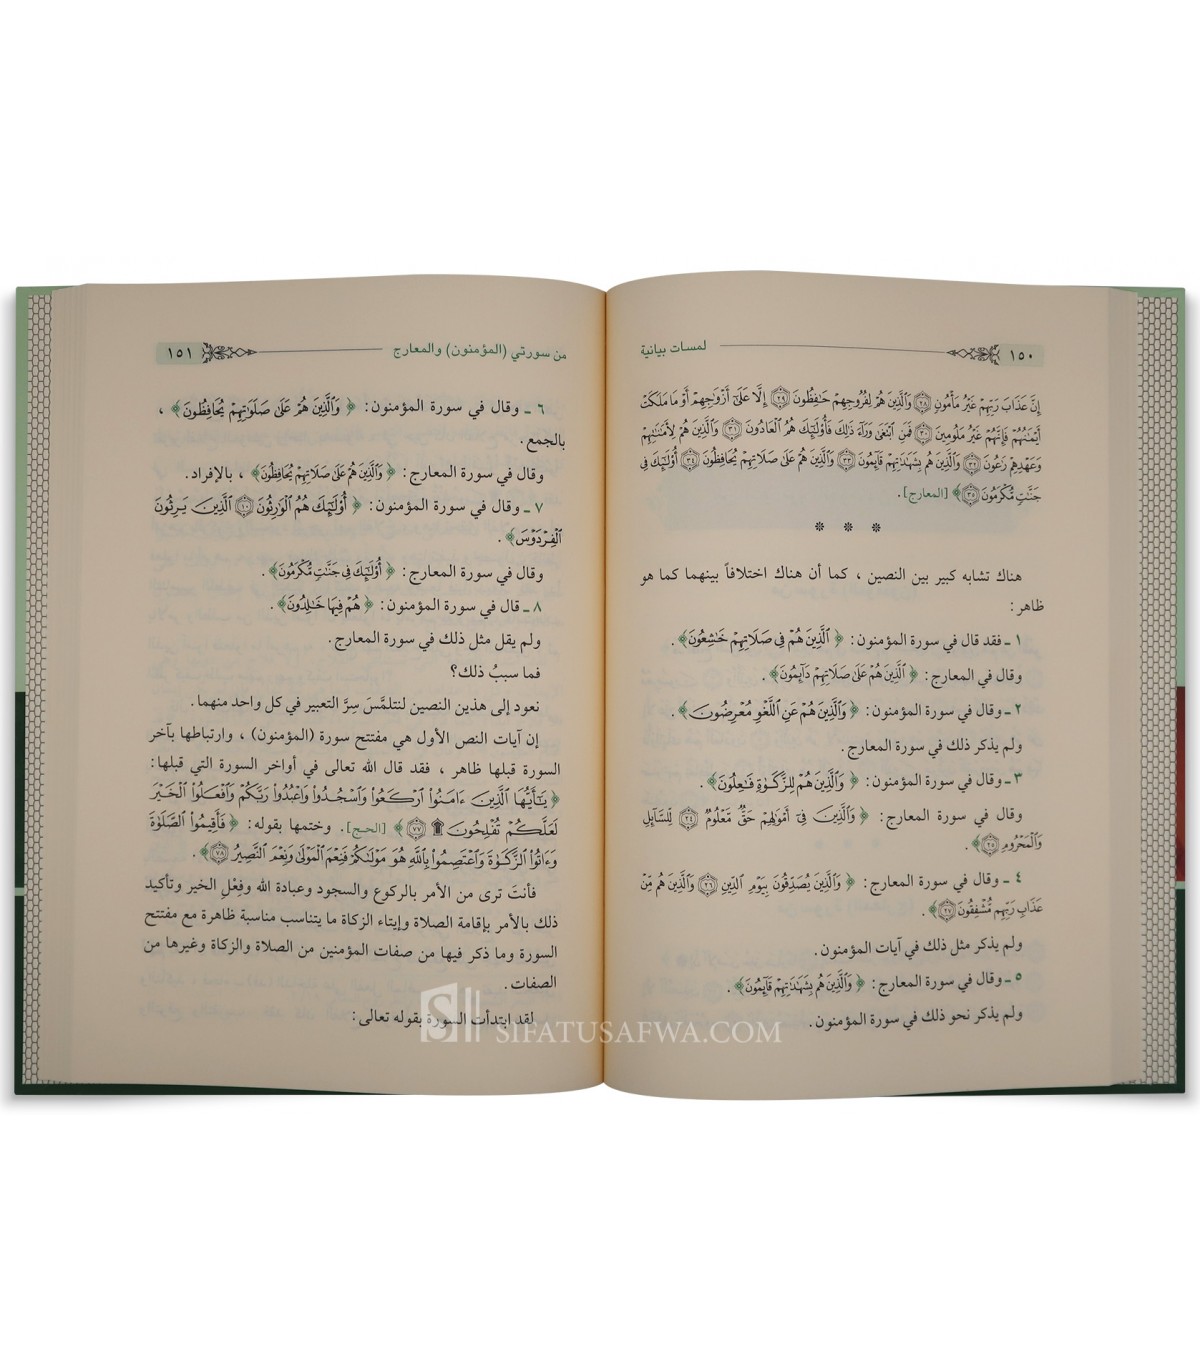 ١٥٠ لمسات بيانية
إِنَّ عَذَابَ رَبِّهِمْ غَيْرُ مَأْمُونٍ ﴿٢٨﴾ وَٱلَّذِينَ هُمْ لِفُرُوجِهِمْ حَٰفِظُونَ ﴿٢٩﴾ إِلَّا عَلَىٰٓ أَزْوَٰجِهِمْ أَوْ مَا مَلَكَتْ
أَيْمَٰنُهُمْ فَإِنَّهُمْ غَيْرُ مَلُومِينَ ﴿٣٠﴾ فَمَنِ ٱبْتَغَىٰ وَرَآءَ ذَٰلِكَ فَأُو۟لَٰٓئِكَ هُمُ ٱلْعَادُونَ ﴿٣١﴾ وَٱلَّذِينَ هُمْ لِأَمَٰنَٰتِهِمْ
وَعَهْدِهِمْ رَٰعُونَ ﴿٣٢﴾ وَٱلَّذِينَ هُم بِشَهَٰدَٰتِهِمْ قَآئِمُونَ ﴿٣٣﴾ وَٱلَّذِينَ هُمْ عَلَىٰ صَلَاتِهِمْ يُحَافِظُونَ ﴿٣٤﴾ أُو۟لَٰٓئِكَ فِى
جَنَّٰتٍ مُّكْرَمُونَ ﴿٣٥﴾﴾ [المعارج].
* * *
هناك تشابه كبير بين النصين ، كما أن هناك اختلافاً بينهما كما هو
ظاهر :
١ ـ فقد قال في سورة المؤمنون: ﴿ٱلَّذِينَ هُمْ فِى صَلَاتِهِمْ خَٰشِعُونَ﴾ .
وقال في المعارج: ﴿ٱلَّذِينَ هُمْ عَلَىٰ صَلَاتِهِمْ دَآئِمُونَ﴾ .
٢ ـ وقال في سورة المؤمنون: ﴿وَٱلَّذِينَ هُمْ عَنِ ٱللَّغْوِ مُعْرِضُونَ﴾ .
ولم يذكر ذلك في سورة المعارج.
٣ ـ وقال في سورة المؤمنون: ﴿وَٱلَّذِينَ هُمْ لِلزَّكَوٰةِ فَٰعِلُونَ﴾ .
وقال في سورة المعارج: ﴿وَٱلَّذِينَ فِىٓ أَمْوَٰلِهِمْ حَقٌّ مَّعْلُومٌ ﴿٢٤﴾ لِّلسَّآئِلِ
وَٱلْمَحْرُومِ ﴿٢٥﴾﴾ .
٤ ـ وقال في سورة المعارج: ﴿وَٱلَّذِينَ يُصَدِّقُونَ بِيَوْمِ ٱلدِّينِ ﴿٢٦﴾ وَٱلَّذِينَ هُم مِّنْ
عَذَابِ رَبِّهِم مُّشْفِقُونَ ﴿٢٧﴾﴾ .
ولم يذكر مثل ذلك في آيات المؤمنون.
٥ ـ وقال في سورة المعارج: ﴿وَٱلَّذِينَ هُم بِشَهَٰدَٰتِهِمْ قَآئِمُونَ﴾ .
ولم يذكر نحو ذلك في سورة المؤمنون.
من سورتي (المؤمنون) والمعارج ١٥١
٦ ـ وقال في سورة المؤمنون: ﴿وَٱلَّذِينَ هُمْ عَلَىٰ صَلَوَٰتِهِمْ يُحَافِظُونَ﴾ ،
بالجمع .
وقال في سورة المعارج: ﴿وَٱلَّذِينَ هُمْ عَلَىٰ صَلَاتِهِمْ يُحَافِظُونَ﴾ ، بالإفراد.
٧ ـ وقال في سورة المؤمنون: ﴿أُو۟لَٰٓئِكَ هُمُ ٱلْوَٰرِثُونَ ﴿١٠﴾ ٱلَّذِينَ يَرِثُونَ
ٱلْفِرْدَوْسَ﴾ .
وقال في سورة المعارج: ﴿أُو۟لَٰٓئِكَ فِى جَنَّٰتٍ مُّكْرَمُونَ﴾ .
٨ ـ قال في سورة المؤمنون: ﴿هُمْ فِيهَا خَٰلِدُونَ﴾ .
ولم يقل مثل ذلك في سورة المعارج.
فما سببُ ذلك؟
نعود إلى هذين النصين لنتلمَّسَ سِرَّ التعبير في كل واحد منهما.
إن آيات النص الأول هي مفتتح سورة (المؤمنون) ، وارتباطها بآخر
السورة قبلها ظاهر ، فقد قال الله تعالى في أواخر السورة التي قبلها:
﴿يَٰٓأَيُّهَا ٱلَّذِينَ ءَامَنُوا۟ ٱرْكَعُوا۟ وَٱسْجُدُوا۟ وَٱعْبُدُوا۟ رَبَّكُمْ وَٱفْعَلُوا۟ ٱلْخَيْرَ
لَعَلَّكُمْ تُفْلِحُونَ ۩ ﴿٧٧﴾﴾ [الحج]. وختمها بقوله: ﴿فَأَقِيمُوا۟ ٱلصَّلَوٰةَ
وَءَاتُوا۟ ٱلزَّكَوٰةَ وَٱعْتَصِمُوا۟ بِٱللَّهِ هُوَ مَوْلَىٰكُمْ فَنِعْمَ ٱلْمَوْلَىٰ وَنِعْمَ ٱلنَّصِيرُ ﴿٧٨﴾﴾ .
فأنتَ ترى من الأمر بالركوع والسجود وعبادة الله وفِعْلِ الخير وتأكيد
ذلك بالأمر بإقامة الصلاة وإيتاء الزكاة ما يتناسب مناسبة ظاهرة مع مفتتح
السورة وما ذكر فيها من صفات المؤمنين من الصلاة والزكاة وغيرها من
الصفات .
لقد ابتدأت السورة بقوله تعالى:
SIFATUSAFWA.COM